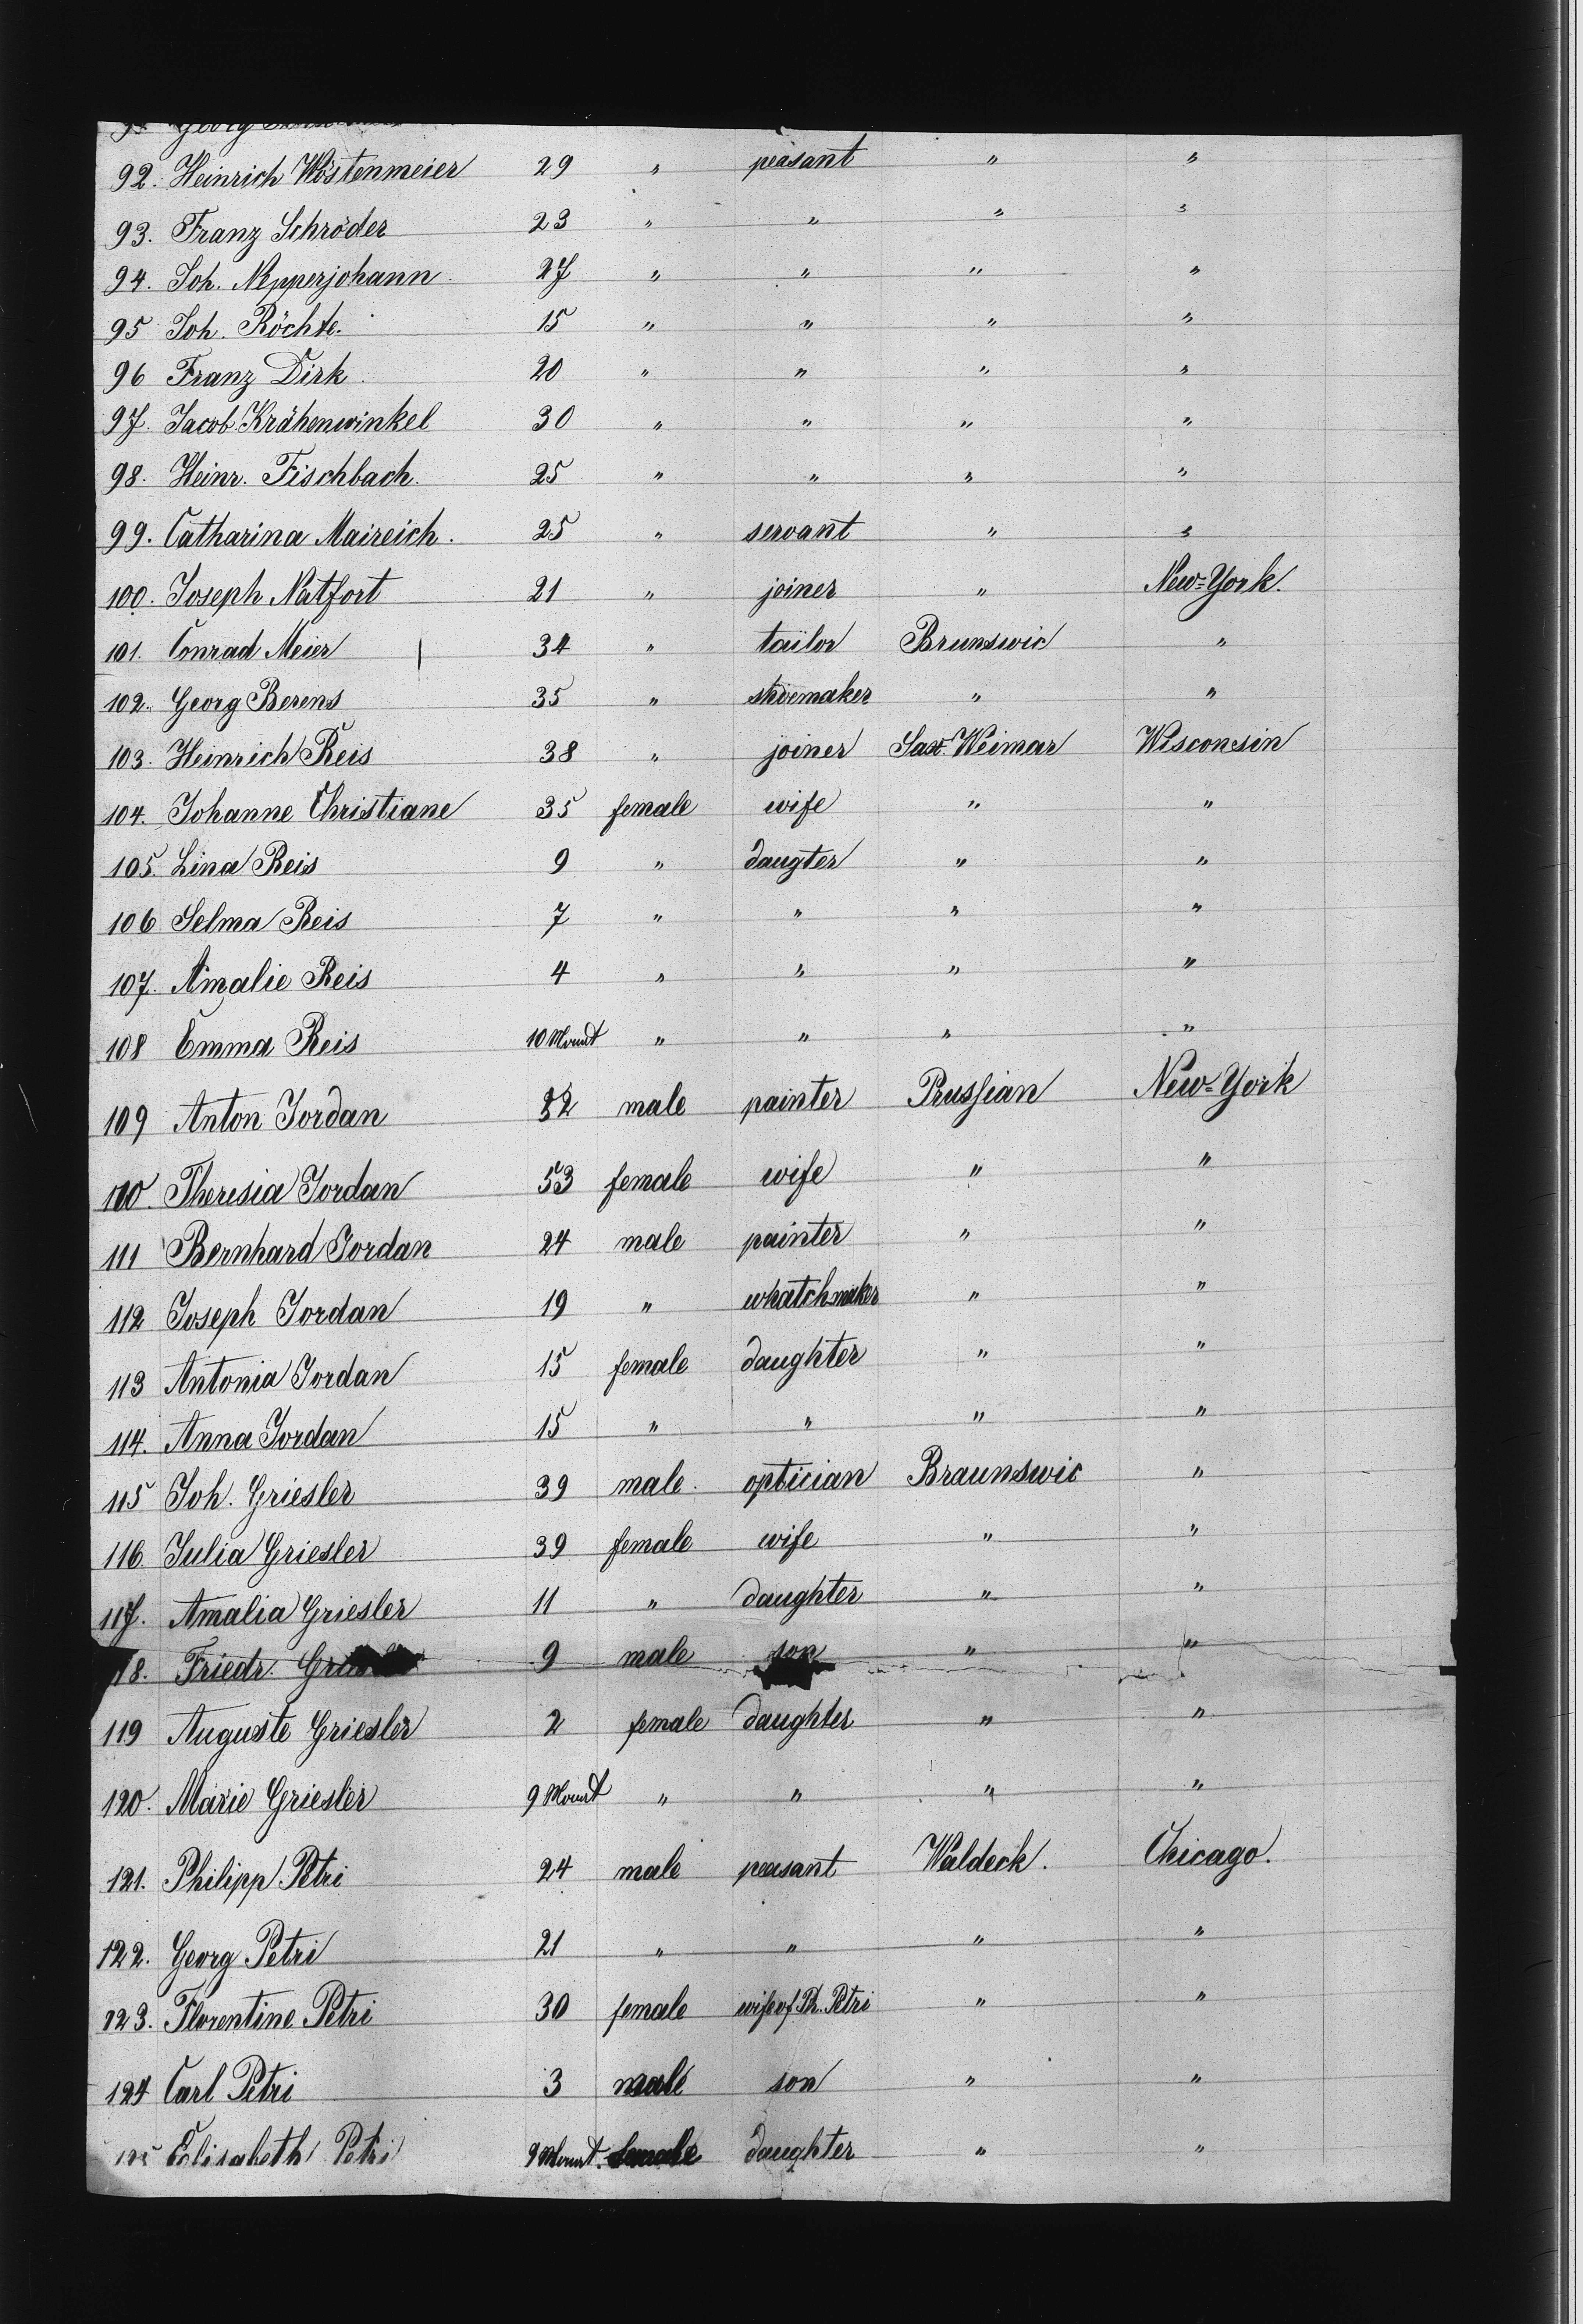 Georg
92. Heinrich Wöstenmeier 29 " peasant " "
93. Franz Schröder 23 " " " "
94. Joh. Nepperjohann 27 " " " "
95 Joh. Röchte. 15 " " " "
96 Franz Dirk 20 " " " "
97. Jacob Krähenwinkel 30 " " " "
98. Heinr. Fischbach. 25 " " " "
99. Catharina Maireich. 25 " servant " "
100. Joseph Natfort 21 " joiner " New=York.
101. Conrad Meier 34 " tailor Brunswic "
102. Georg Berens 35 " shoemaker " "
103. Heinrich Reis 38 " joiner Sax. Weimar Wisconsin
104. Johanne Christiane 35 female wife " "
105. Lina Reis 9 " daugter " "
106 Selma Reis 7 " " " "
107. Amalie Reis 4 " " " "
108 Emma Reis 10 Mount " " " "
109 Anton Jordan 52 male painter Prussian New=York
110. Theresia Jordan 53 female wife " "
111 Bernhard Jordan 24 male painter " "
112 Joseph Jordan 19 " whatchmaker " "
113 Antonia Jordan 15 female daughter " "
114. Anna Jordan 15 " " " "
115 Joh. Griesler 39 male. optician Braunswic "
116. Julia Griesler 39 female wife " "
117. Amalia Griesler 11 " daughter " "
118. Friedr. 9 male son " "
119 Auguste Griesler 2 female daughter " "
120. Marie Griesler 9 Mount " " " "
121. Philipp Petri 24 male peasant Waldeck. Chicago.
122. Georg Petri 21 " " " "
123. Florentine Petri 30 female wife of Ph. Petri " "
124 Carl Petri 3 male son " "
125 Elisabeth Petri 9 Mount. female daughter " "